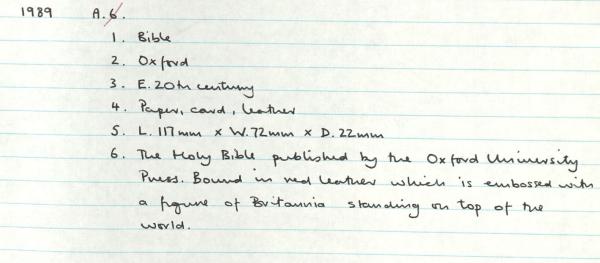 1989 A.6.
1. Bible
2. Oxford
3. E. 20th century
4. Paper, card, leather
5. L. 117mm x W. 72mm x D. 22mm
6. The Holy Bible published by the Oxford University
Press. Bound in red leather which is embossed with
a figure of Britannia standing on top of the
world.